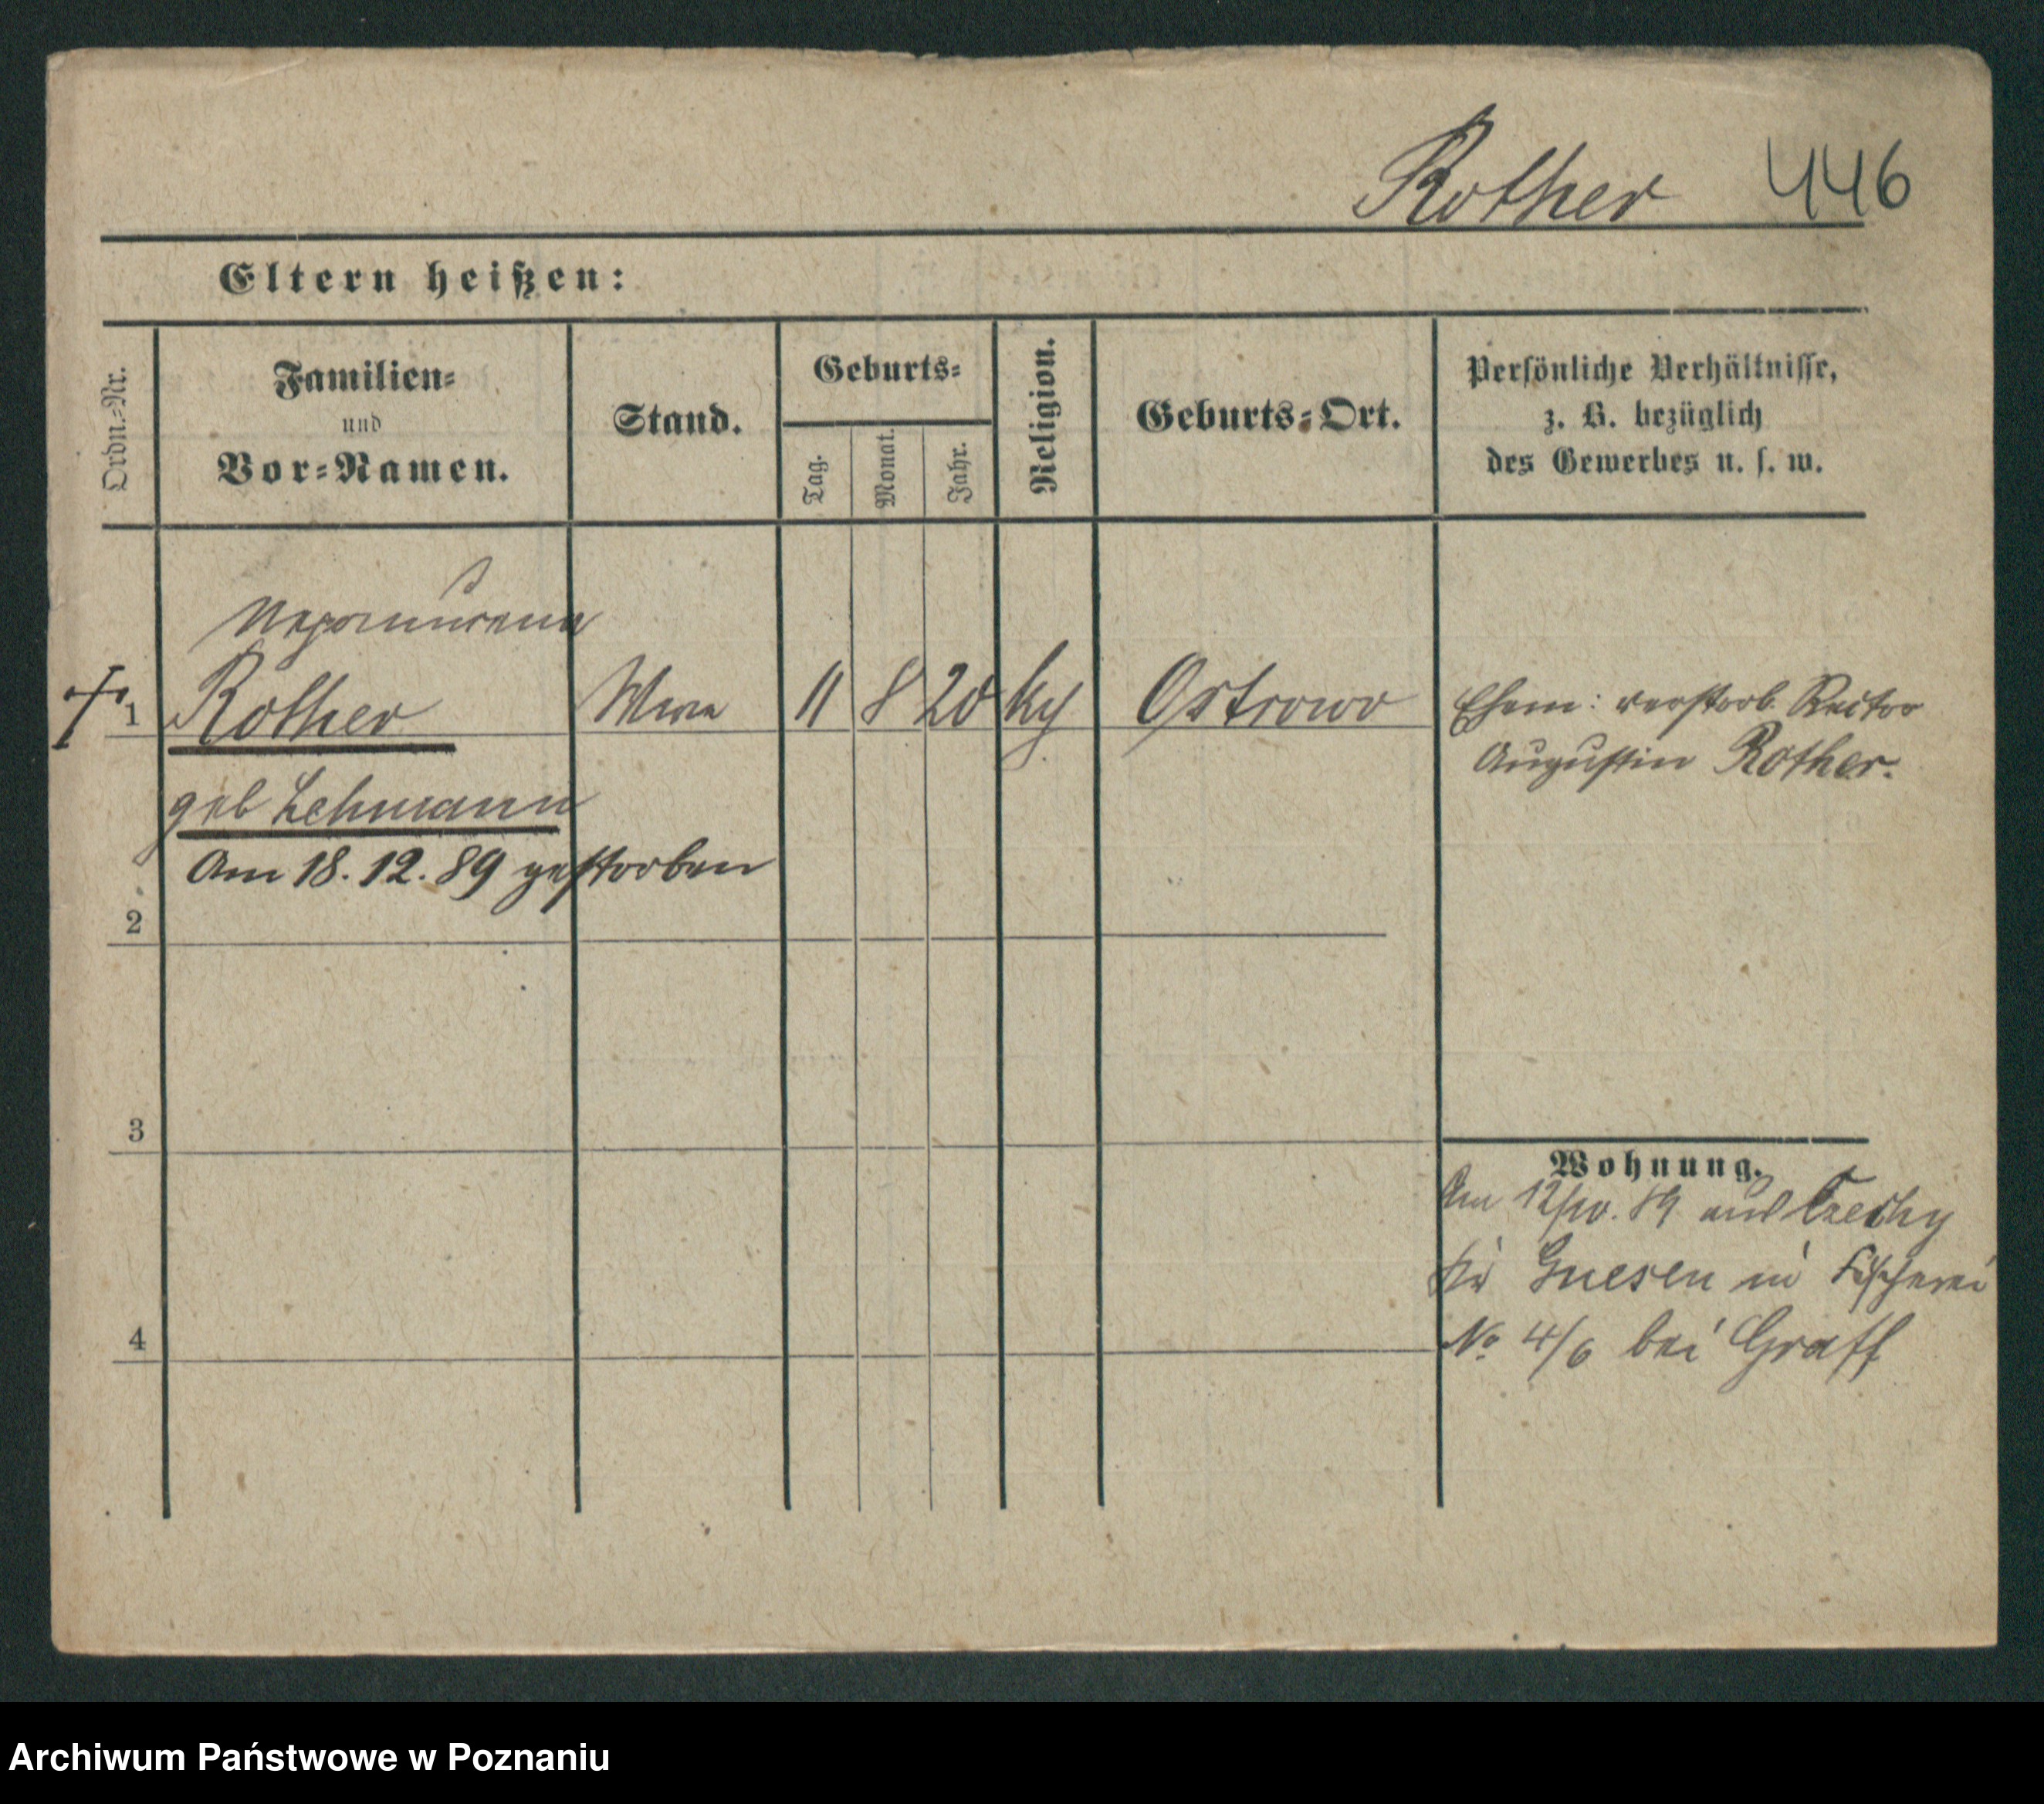 Rother 446
Eltern heißen:
Ordn.=Nr.
Familien=
und
Vor=Namen.
Stand.
Geburts=
Tag.
Monat.
Jahr.
Religion.
Geburts=Ort.
Persönliche Verhältnisse,
z. B. bezüglich
des Gewerbes u. s. w.
Nepomucena
1 Rother Wwe 11 8 20 Ostrowo
Ehem: verstorb. Rector
Augustin Rother.
geb Lehmann
Am 18. 12. 89 gestorben
2
3
4
Wohnung.
Am 12/10. 89 aus Czechy
Kr Gnesen in Fischerei
No 4/6 bei Graff
Archiwum Państwowe w Poznaniu